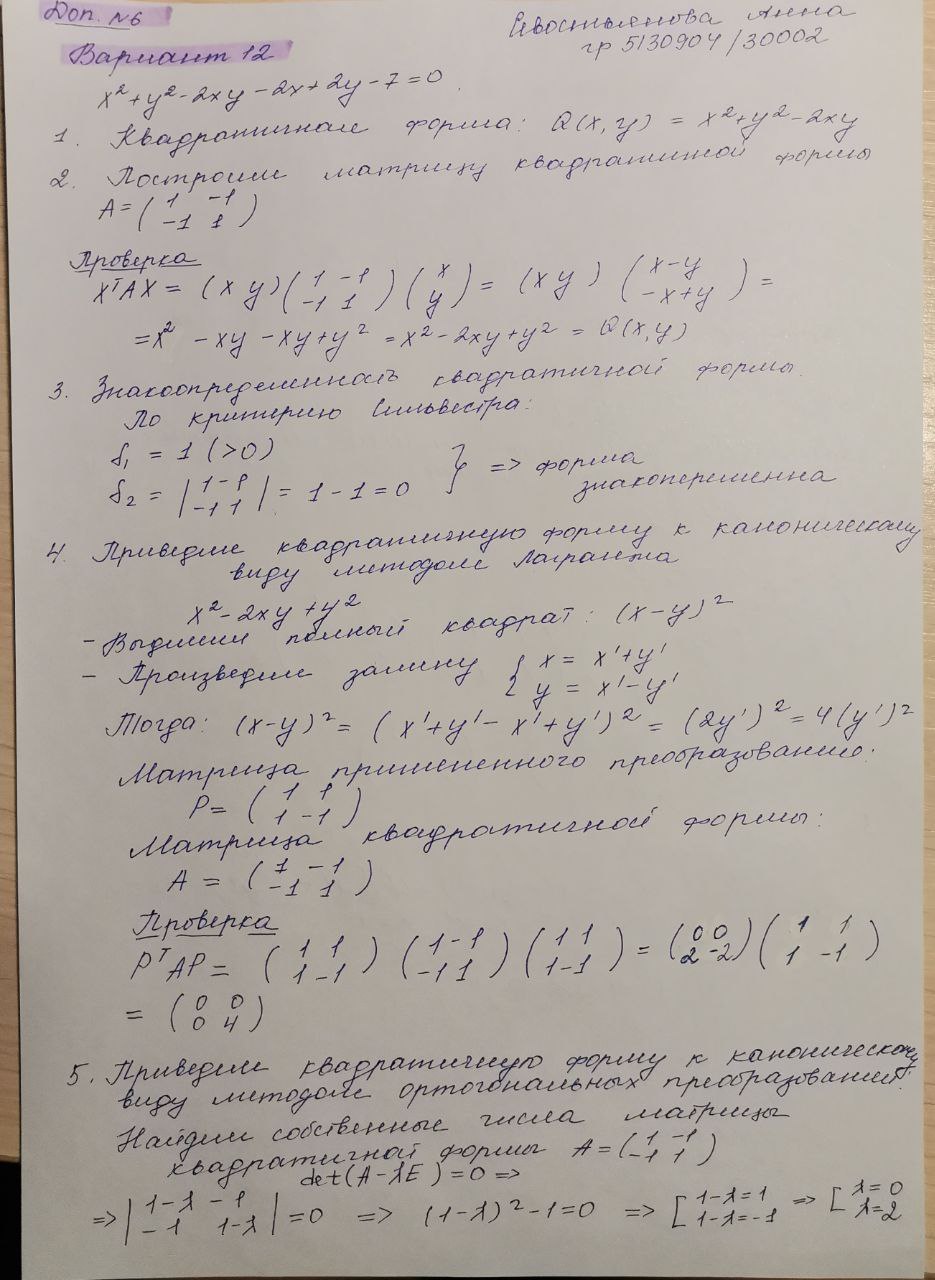 Доп. №6
Севостьянова Анна
гр 5130904/30002
Вариант 12
x² + y² - 2xy - 2x + 2y - 7 = 0
1. Квадратичная форма: Q(x, y) = x² + y² - 2xy
2. Построим матрицу квадратичной формы
A = ( 1 -1
-1 1 )
Проверка
XᵀAX = (x y) ( 1 -1 ) ( x ) = (x y) ( x-y ) =
-1 1 y -x+y
= x² - xy - xy + y² = x² - 2xy + y² = Q(x, y)
3. Знакоопределенность квадратичной формы.
По критерию Сильвестра:
δ₁ = 1 (>0)
δ₂ = | 1 -1 | = 1 - 1 = 0 } => форма
-1 1 знакопеременна
4. Приведем квадратичную форму к каноническому
виду методом Лагранжа
x² - 2xy + y²
- Выделим полный квадрат: (x-y)²
- Произведем замену { x = x' + y'
y = x' - y'
Тогда: (x-y)² = (x' + y' - x' + y')² = (2y')² = 4(y')²
Матрица примененного преобразования:
P = ( 1 1
1 -1 )
Матрица квадратичной формы:
A = ( 1 -1
-1 1 )
Проверка
PᵀAP = ( 1 1 ) ( 1 -1 ) ( 1 1 ) = ( 0 0 ) ( 1 1 )
1 -1 -1 1 1 -1 2 -2 1 -1
= ( 0 0
0 4 )
5. Приведем квадратичную форму к каноническому
виду методом ортогональных преобразований.
Найдем собственные числа матрицы
квадратичной формы A = ( 1 -1
-1 1 )
det(A - λE) = 0 =>
=> | 1-λ -1 | = 0 => (1-λ)² - 1 = 0 => [ 1-λ = 1 => [ λ = 0
-1 1-λ 1-λ = -1 λ = 2